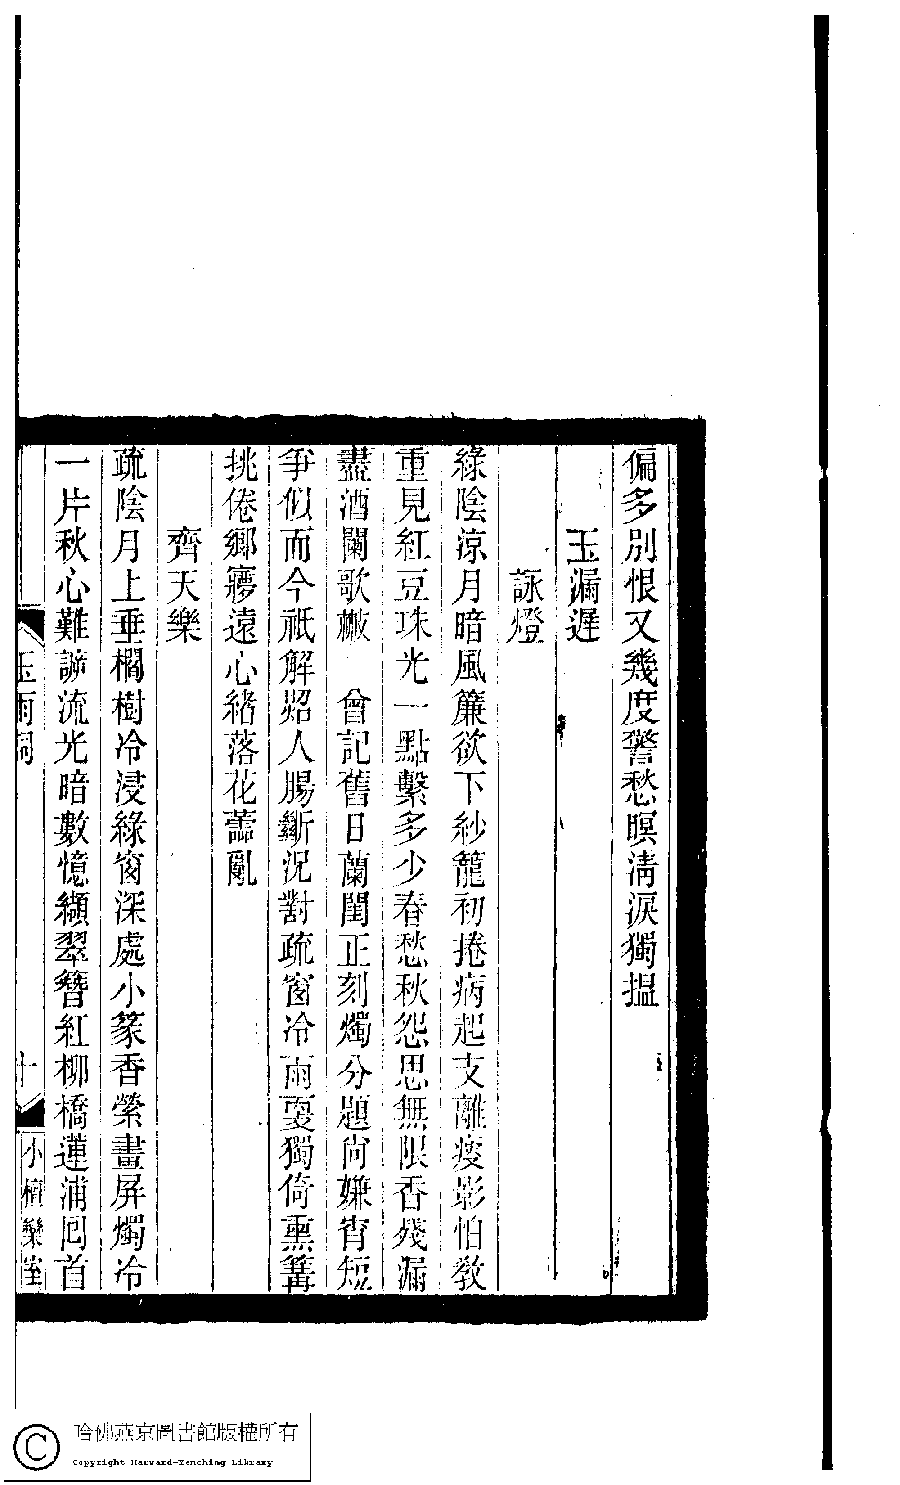 偏多別恨又幾度警愁暝清淚獨搵
玉漏遲
詠燈
綠陰涼月暗風簾欲下紗籠初捲病起支離瘦影怕教
重見紅豆珠光一點繫多少春愁秋怨思無限香殘漏
盡酒闌歌樕　曾記舊日蘭閨正刻燭分題尙嫌宵短
爭似而今祇解照人腸斷況對疏窗冷雨更獨倚熏篝
挑倦鄉夢遠心緖落花蕭亂
齊天樂
疏陰月上垂櫚樹冷浸綠窗深處小篆香縈畫屏燭冷
一片秋心難諦流光暗數憶纈翠簪紅柳橋蓮浦回首
玉雨詞
十
小檀欒室
哈佛燕京圖書館版權所有
Copyright Harvard-Yenching Library